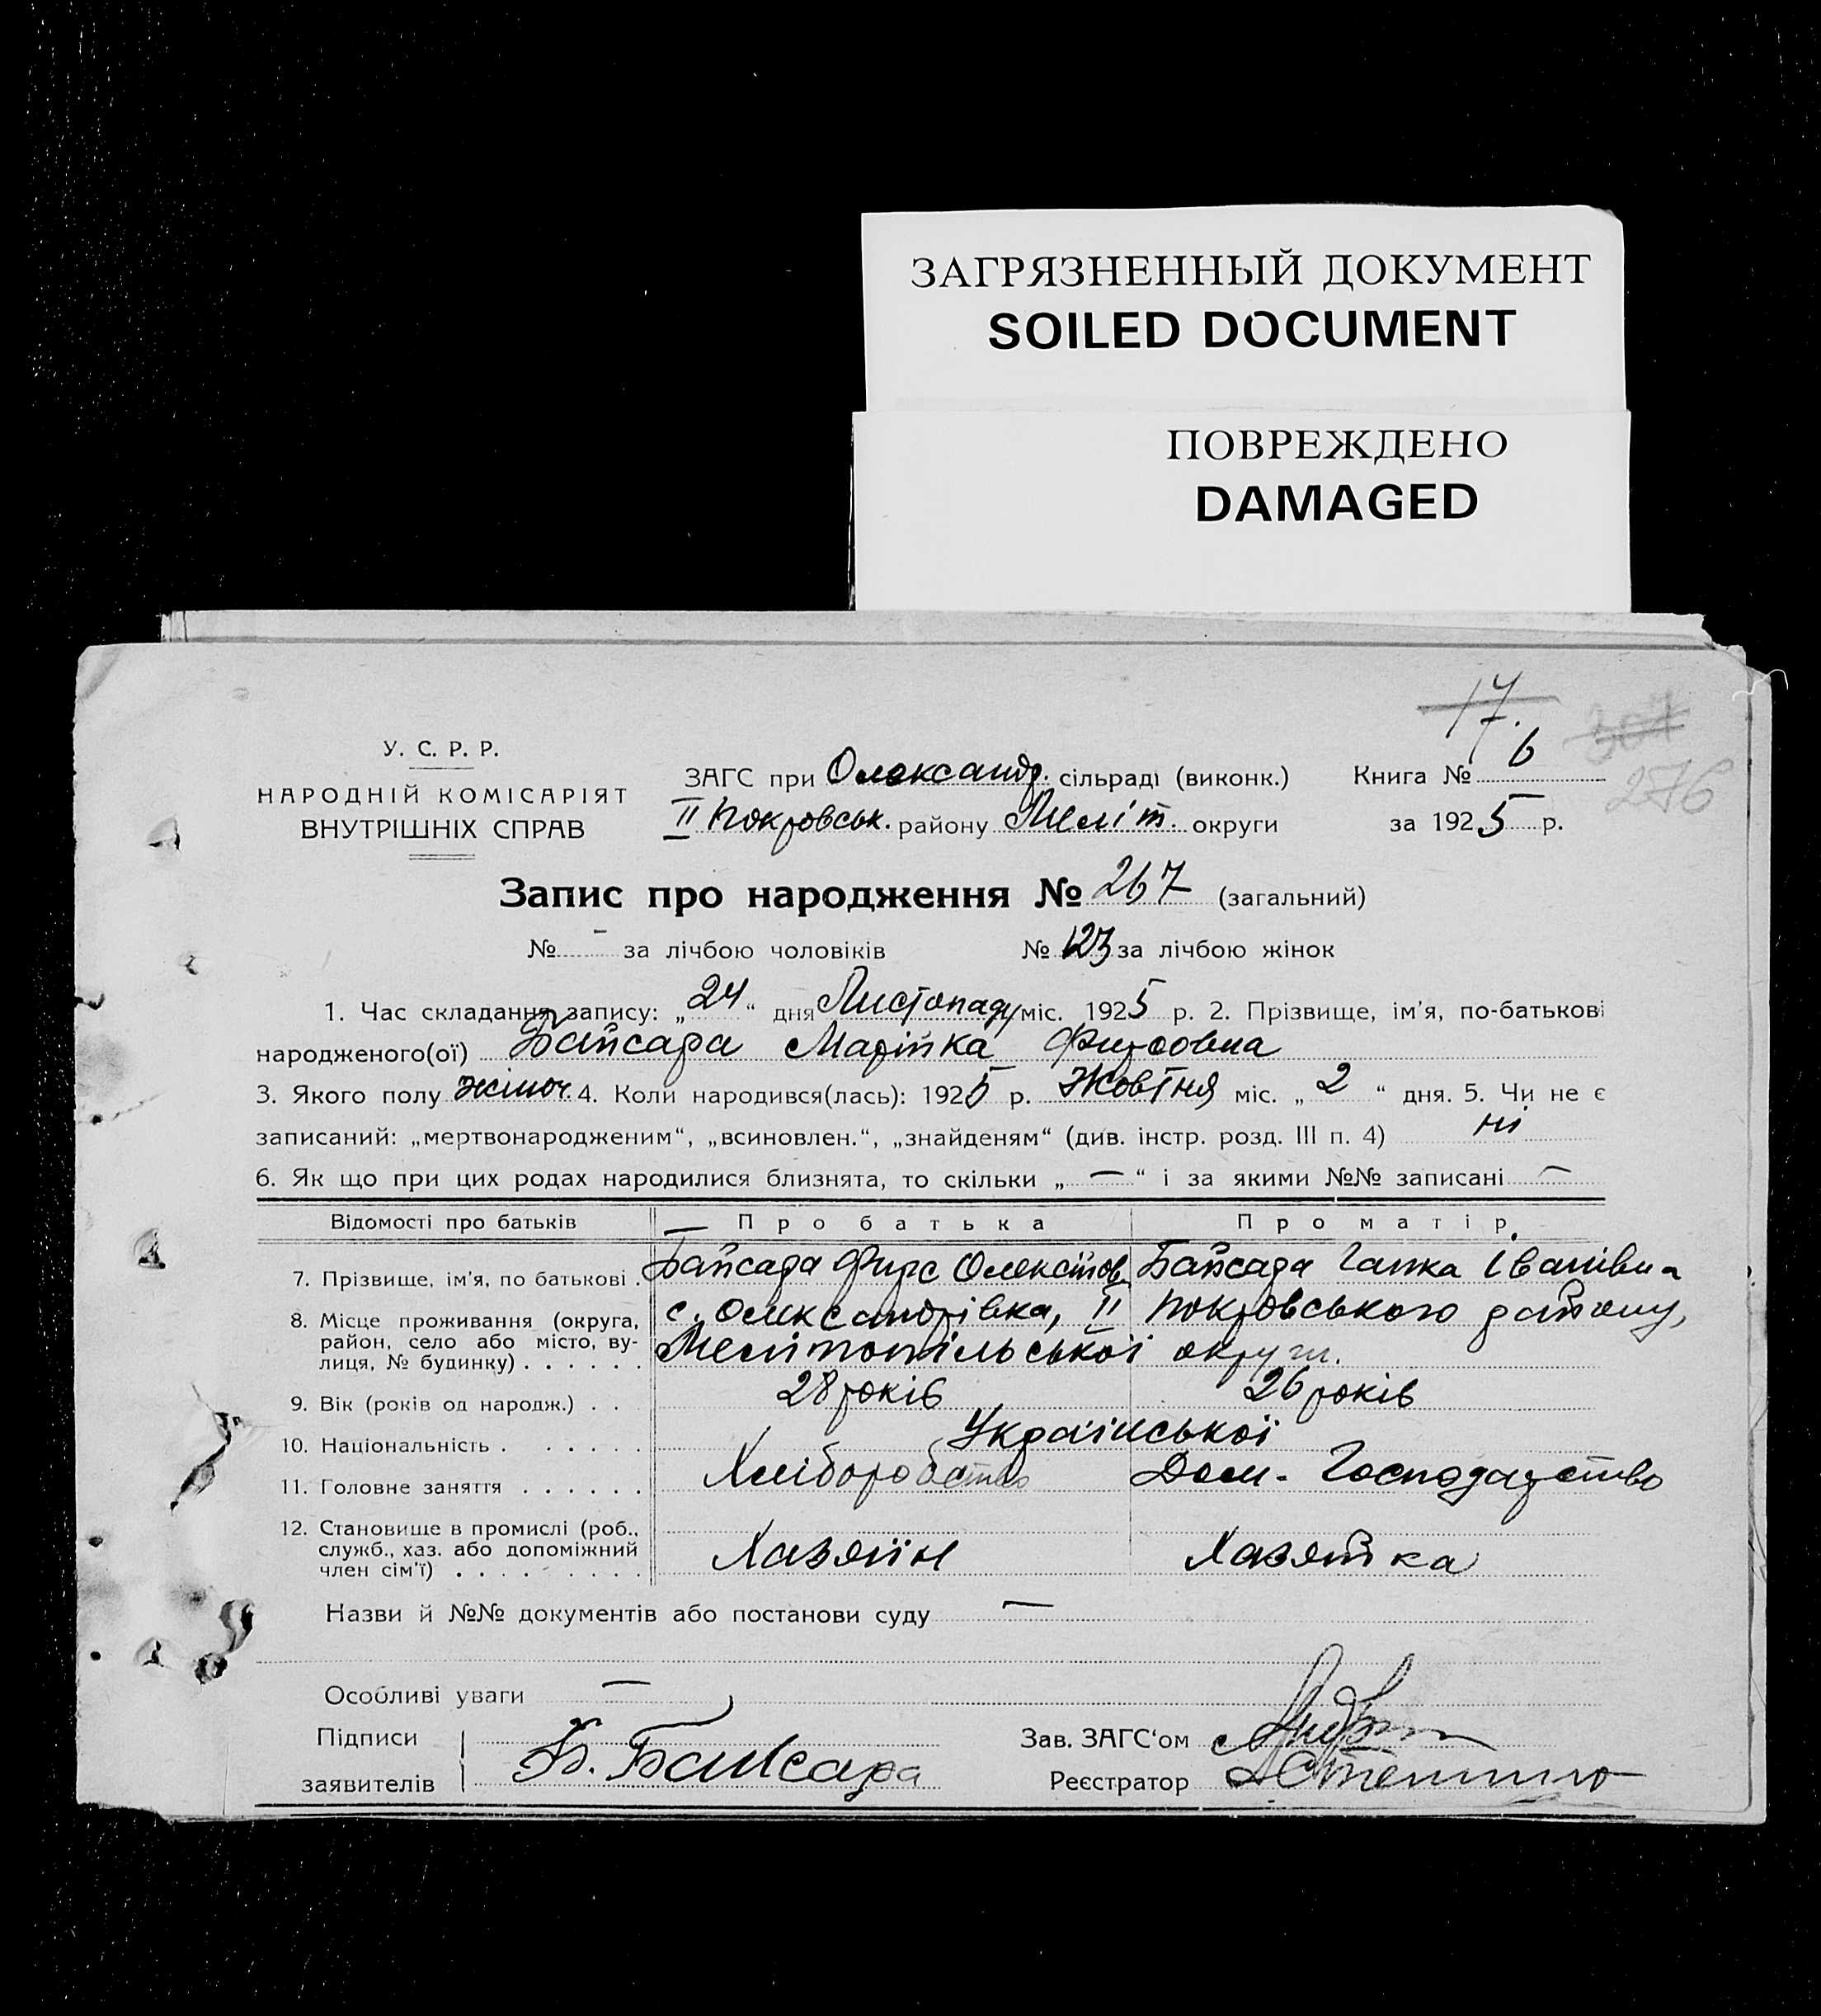 ЗАГРЯЗНЕННЫЙ ДОКУМЕНТ
SOILED DOCUMENT
ПОВРЕЖДЕНО
DAMAGED
17.
307
276
У. С. Р. Р.
НАРОДНІЙ КОМІСАРІЯТ
ВНУТРІШНІХ СПРАВ
ЗАГС при Олександр. сільраді (виконк.)
II Покровськ. району Меліт. округи
Книга № 6
за 1925 р.
Запис про народження № 267 (загальний)
№ - за лічбою чоловіків № 123 за лічбою жінок
1. Час складання запису: „24“ дня Листопаду міс. 1925 р. 2. Прізвище, ім'я, по-батькові
народженого(ої) Байсара Марійка Фирсовна
3. Якого полу жіноч. 4. Коли народився(лась): 1925 р. Жовтня міс. „2“ дня. 5. Чи не є
записаний: „мертвонародженим“, „всиновлен.“, „знайденям“ (див. інстр. розд. III п. 4) ні
6. Як що при цих родах народилися близнята, то скільки „—“ і за якими №№ записані —
Відомості про батьків Про батька Про матір
7. Прізвище, ім'я, по батькові . Байсара Фирс Олексійов. Байсара Ганка Іванівна
8. Місце проживання (округа, район, село або місто, вулиця, № будинку) . . . . . . с. Олександрівка, II Покровського району,
Мелітопільської округи.
9. Вік (років од народж.) . . 28 років 26 років
10. Національність . . . . . . Української
11. Головне заняття . . . . . . Хліборобство Дом. Господарство
12. Становище в промислі (роб., служб., хаз. або допоміжний член сім'ї) . . . . . . . . . Хазяїн Хазяйка
Назви й №№ документів або постанови суду —
Особливі уваги —
Підписи
заявителів
Байсара
Зав. ЗАГС'ом
Реєстратор